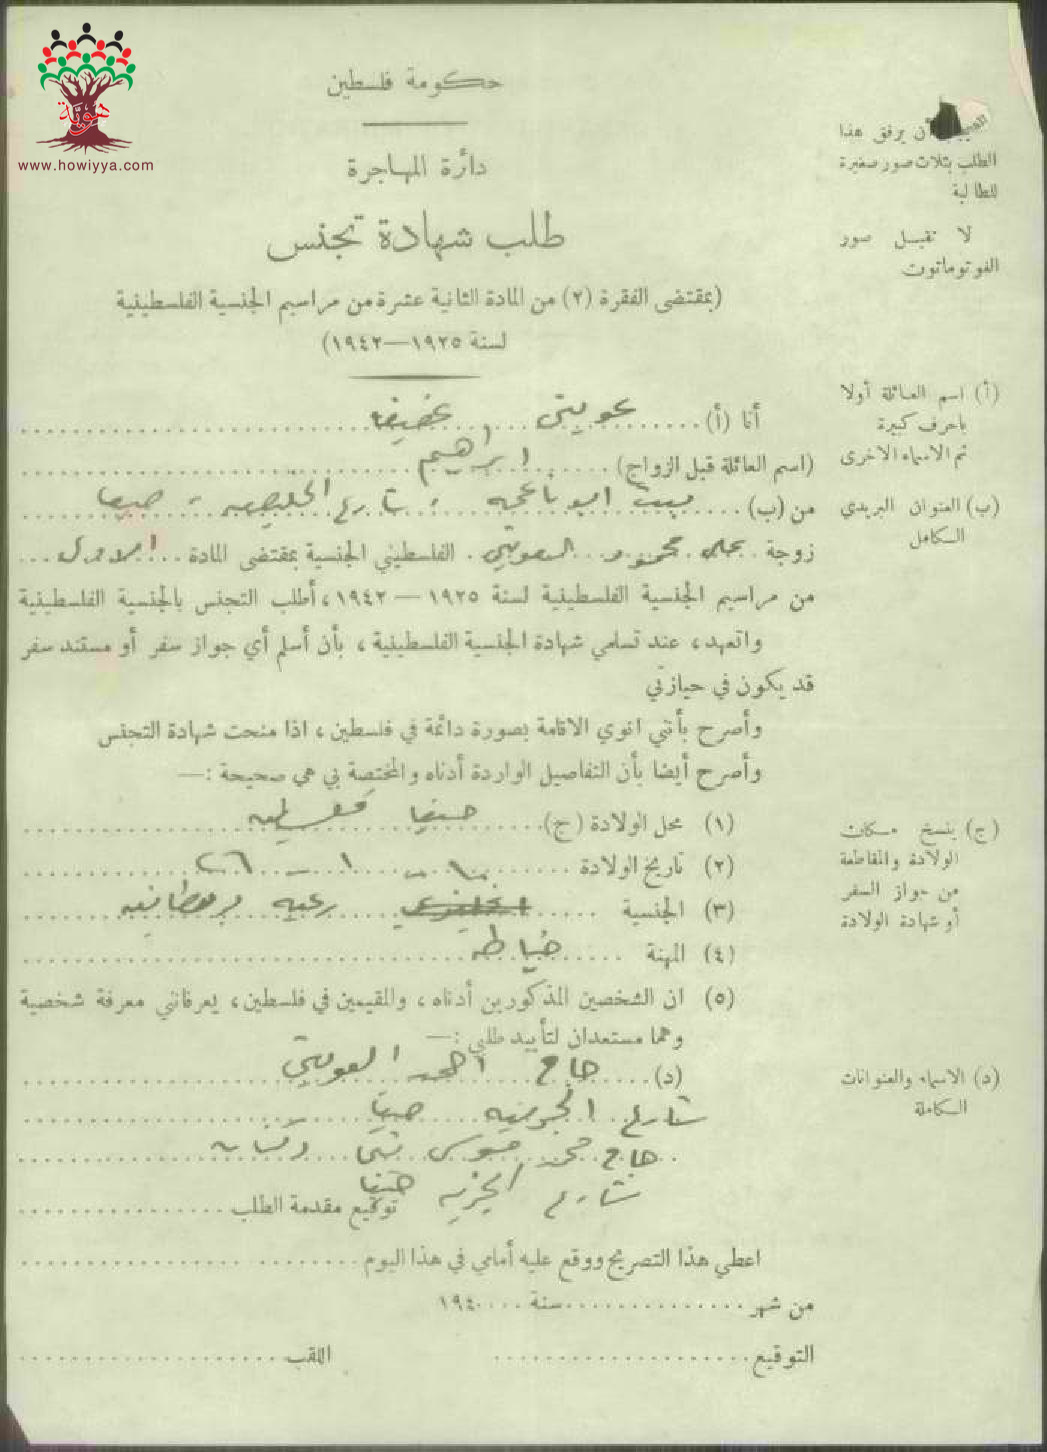 هوية
www.howiyya.com
حكومة فلسطين
دائرة المهاجرة
طلب شهادة تجنس
(بمقتضى الفقرة (٢) من المادة الثانية عشرة من مراسيم الجنسية الفلسطينية
لسنة ١٩٢٥—١٩٤٢)
أن يرفق هذا
الطلب بثلاث صور صغيرة
للطالبة
لا تقبل صور
الفوتوماتون
أنا (أ) عويتي
(اسم العائلة قبل الزواج) ابراهيم
من (ب) شارع حيفا
زوجة علي محمود الفلسطيني الجنسية بمقتضى المادة
من مراسيم الجنسية الفلسطينية لسنة ١٩٢٥—١٩٤٢، أطلب التجنس بالجنسية الفلسطينية
واتعهد، عند تسلمي شهادة الجنسية الفلسطينية، بأن أسلم أي جواز سفر أو مستند سفر
قد يكون في حيازتي
وأصرح بأنني انوي الاقامة بصورة دائمة في فلسطين، اذا منحت شهادة التجنس
وأصرح أيضا بأن التفاصيل الواردة أدناه والمختصة بي هي صحيحة :—
(١) محل الولادة (ج) حيفا فلسطين
(٢) تاريخ الولادة
(٣) الجنسية رعيه بريطانيه
(٤) المهنة خياطه
(٥) ان الشخصين المذكورين أدناه، والمقيمين في فلسطين، يعرفانني معرفة شخصية
وهما مستعدان لتأييد طلبي :—
(د) حاج احمد العويتي
شارع حيفا
حاج محمد
شارع حيفا
توقيع مقدمة الطلب
اعطي هذا التصريح ووقع عليه أمامي في هذا اليوم
من شهر سنة ١٩٤
التوقيع اللقب
(أ) اسم العائلة أولا
باحرف كبيرة
ثم الاسماء الاخرى
(ب) العنوان البريدي
الكامل
(ج) ينسخ مكان
الولادة والمقاطعة
من جواز السفر
أو شهادة الولادة
(د) الاسماء والعنوانات
الكاملة